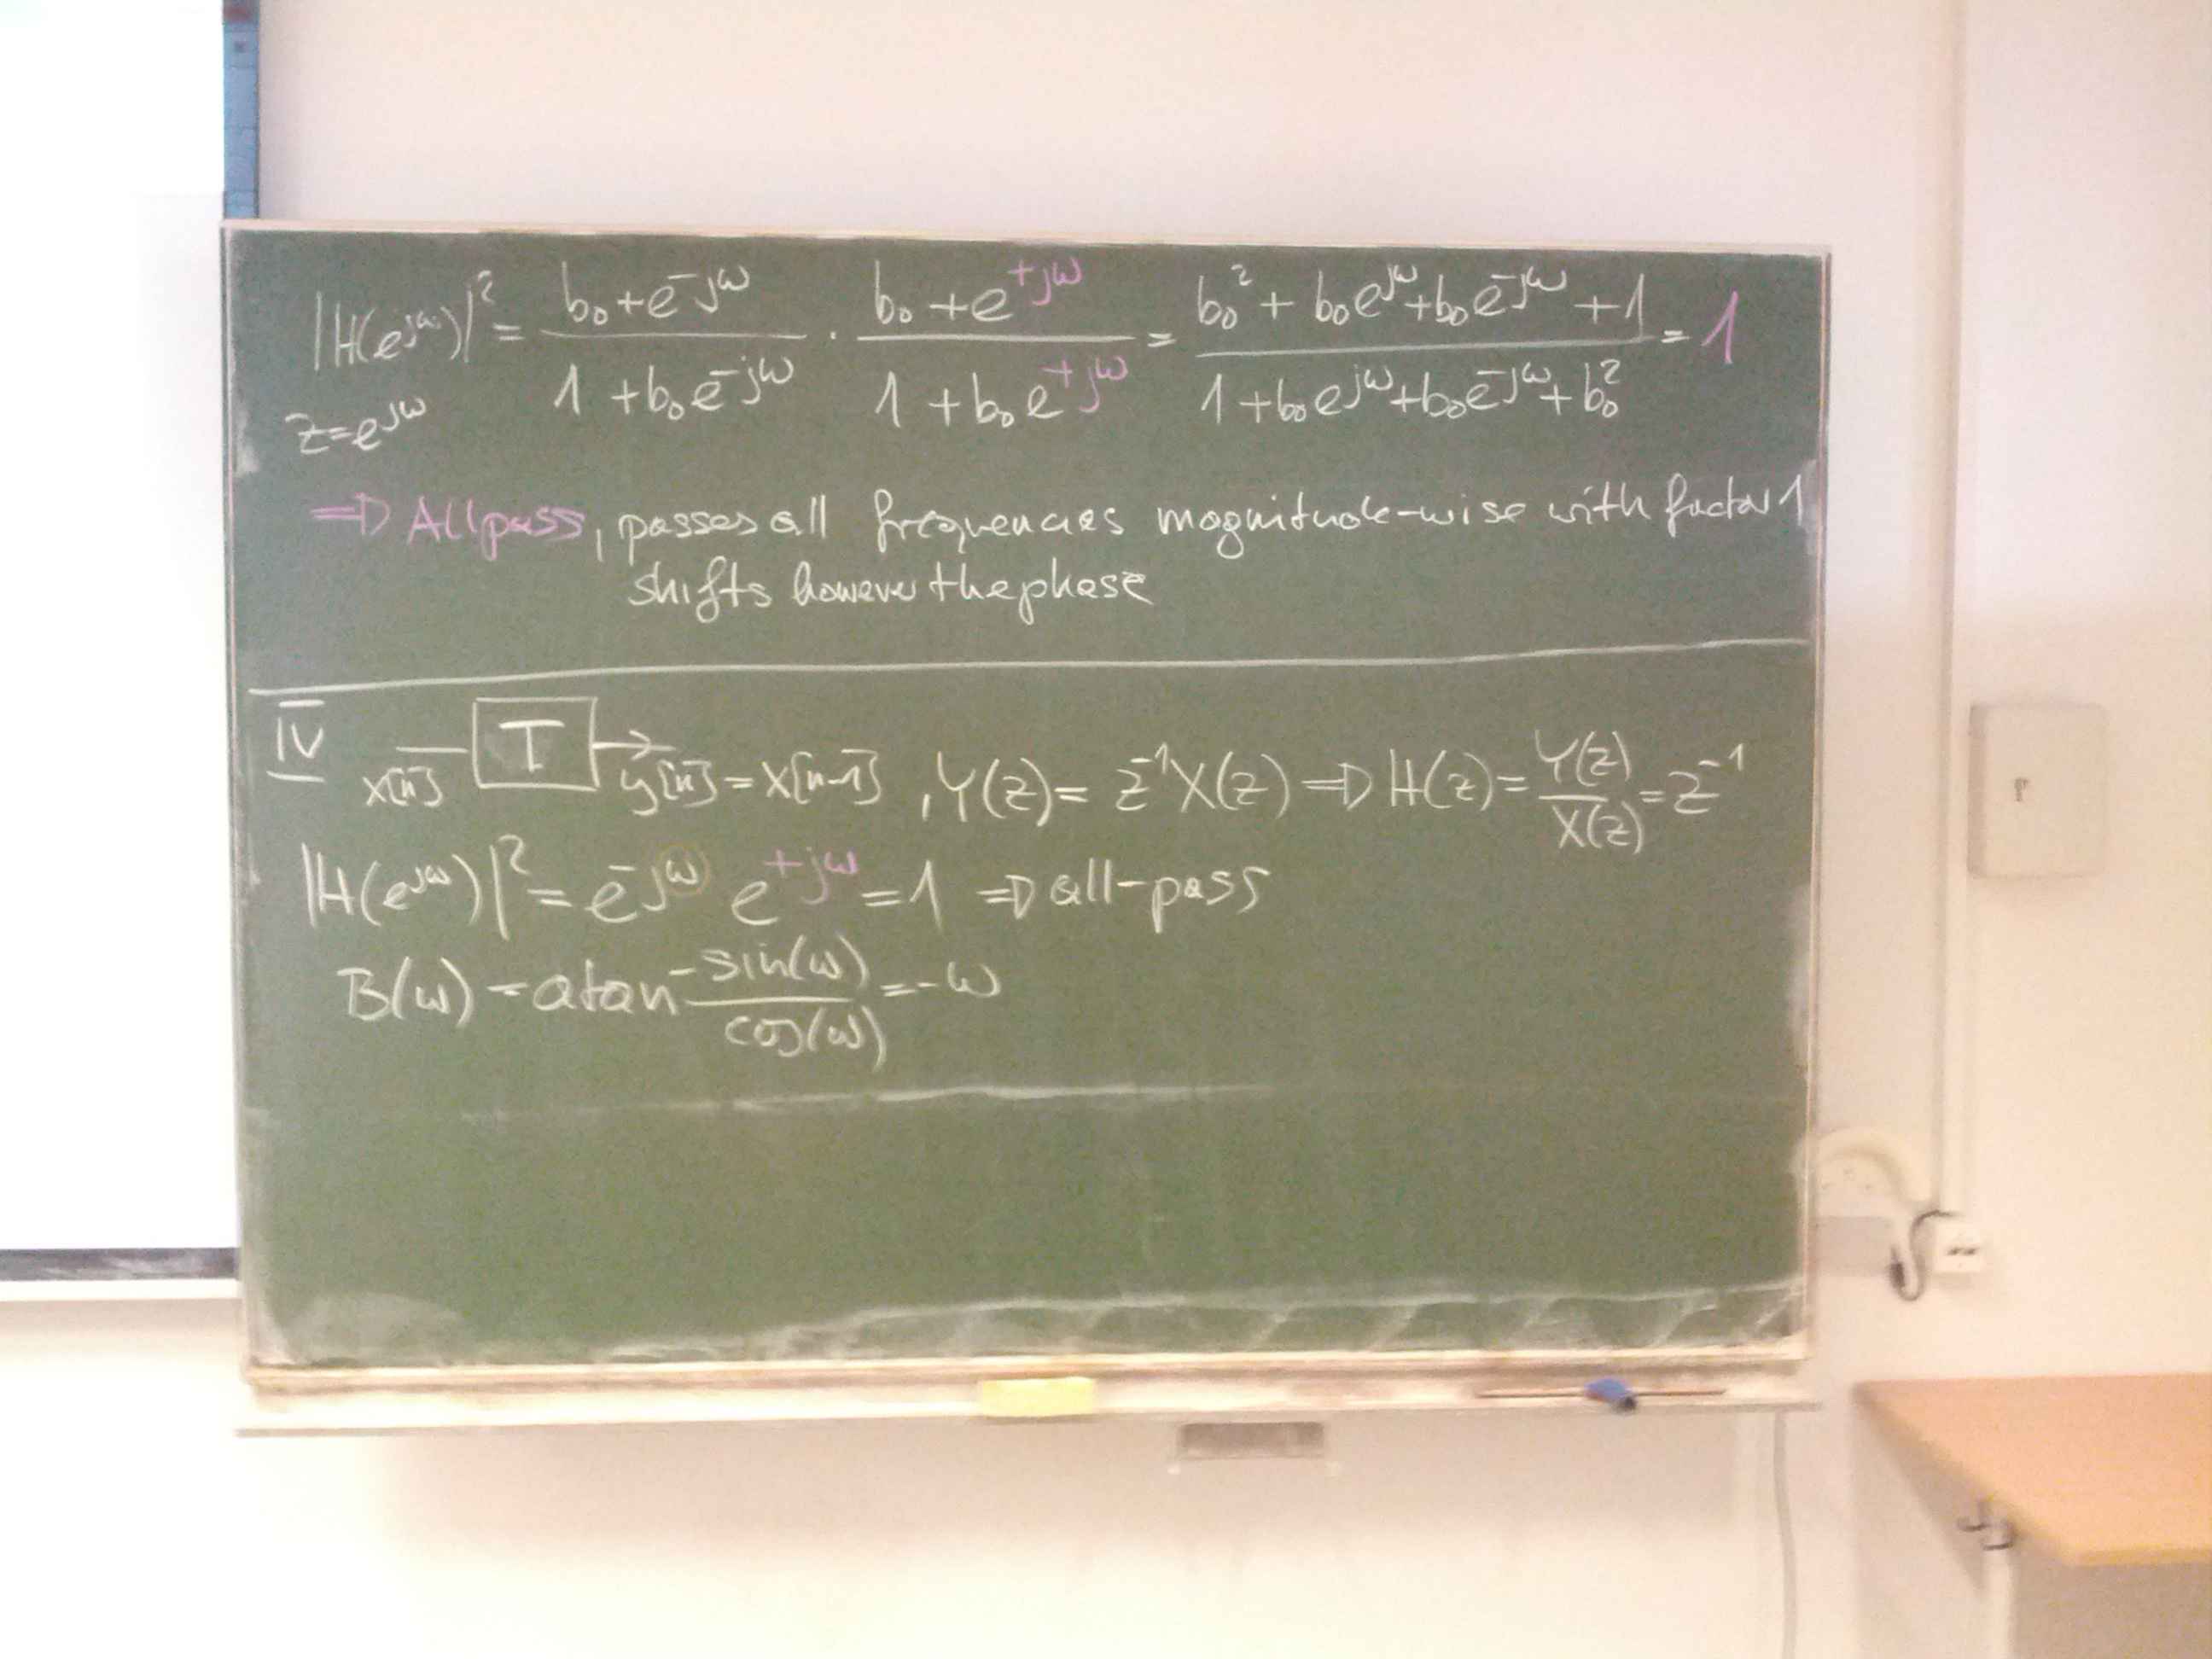 |H(e^jω)|² = (b₀+e^-jω)/(1+b₀e^-jω) · (b₀+e^+jω)/(1+b₀e^+jω) = (b₀²+b₀e^jω+b₀e^-jω+1)/(1+b₀e^jω+b₀e^-jω+b₀²) = 1
z=e^jω
⇒ Allpass, passes all frequencies magnitude-wise with factor 1
shifts however the phase
IV
T
x[n] y[n] = x[n-1] , Y(z) = z^-1 X(z) ⇒ H(z) = Y(z)/X(z) = z^-1
|H(e^jω)|² = e^-jω e^+jω = 1 ⇒ all-pass
B(ω) = atan -sin(ω)/cos(ω) = -ω